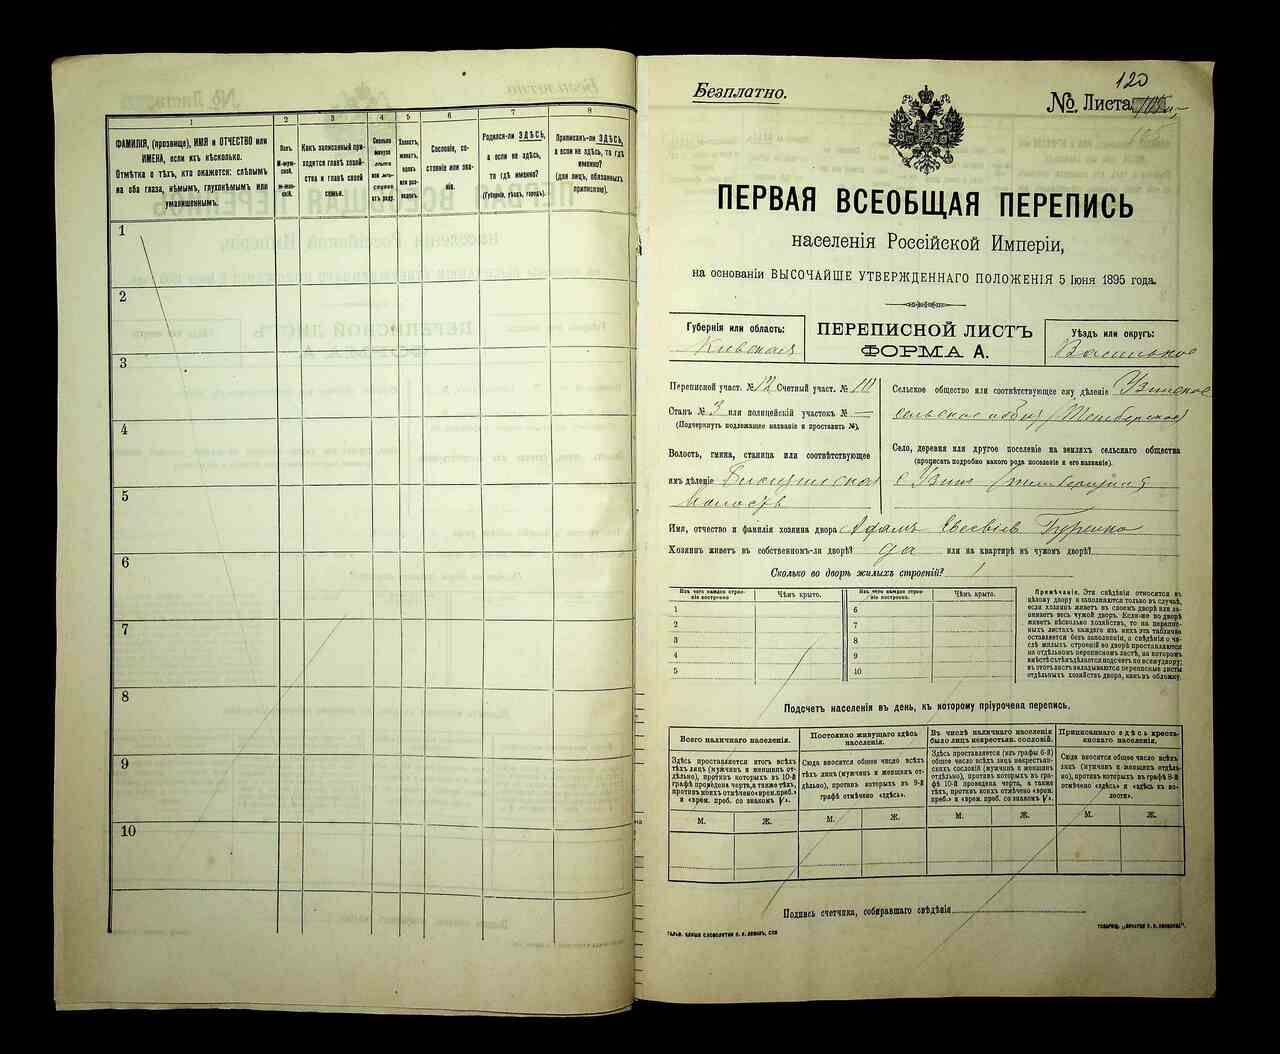 1
2
3
4
5
6
7
8
ФАМИЛІЯ, (прозвище), ИМЯ и ОТЧЕСТВО или
ИМЕНА, если ихъ нѣсколько.
Отмѣтка о тѣхъ, кто окажется: слѣпымъ
на оба глаза, нѣмымъ, глухонѣмымъ или
умалишеннымъ.
Полъ.
М-муж-
ской.
Ж-жен-
скій.
Какъ записанный при-
ходится главѣ хозяй-
ства и главѣ своей
семьи.
Сколько
минуло
лѣтъ
или мѣс.
отъ роду.
Холостъ,
женатъ,
вдовъ
или раз-
веденъ.
Сословіе, со-
стояніе или зва-
ніе.
Родился-ли ЗДѢСЬ,
а если не здѣсь,
то гдѣ именно?
(Губернія, уѣздъ, городъ).
Приписанъ-ли ЗДѢСЬ,
а если не здѣсь, то гдѣ
именно?
(для лицъ, обязанныхъ
припискою).
1
2
3
4
5
6
7
8
9
10
Безплатно.
120
№ Листа
105
ПЕРВАЯ ВСЕОБЩАЯ ПЕРЕПИСЬ
населенія Россійской Имперіи,
на основаніи ВЫСОЧАЙШЕ УТВЕРЖДЕННАГО ПОЛОЖЕНІЯ 5 Іюня 1895 года.
Губернія или область:
Кіевская
ПЕРЕПИСНОЙ ЛИСТЪ
ФОРМА А.
Уѣздъ или округъ:
Васильков
Переписной участ. № 12 Счетный участ. № 10
Станъ № 3 или полицейскій участокъ № —
(Подчеркнуть подлежащее названіе и проставить №).
Волость, гмина, станица или соотвѣтствующее
имъ дѣленіе
Волость
Сельское общество или соотвѣтствующее ему дѣленіе Узинское
сельское
Село, деревня или другое поселеніе на земляхъ сельскаго общества
(прописать подробно какого рода поселеніе и его названіе).
с. Узин
Имя, отчество и фамилія хозяина двора Адамъ Евсевіев Буренко
Хозяинъ живетъ въ собственномъ-ли дворѣ? да или на квартирѣ въ чужомъ дворѣ?
Сколько во дворѣ жилыхъ строеній? 1
Изъ чего каждое строе-
ніе построено
Чѣмъ крыто.
Изъ чего каждое строе-
ніе построено
Чѣмъ крыто.
1
2
3
4
5
6
7
8
9
10
Примѣчаніе. Эти свѣдѣнія относятся къ
цѣлому двору и заполняются только въ случаѣ,
если хозяинъ живетъ въ своемъ дворѣ или за-
нимаетъ весь чужой дворъ. Если-же во дворѣ
живетъ нѣсколько хозяйствъ, то на перепис-
ныхъ листахъ каждаго изъ нихъ эта табличка
оставляется безъ заполненія, а свѣдѣнія о чи-
слѣ жилыхъ строеній во дворѣ проставляются
на отдѣльномъ переписномъ листѣ, на которомъ
вмѣстѣ съ тѣмъ дѣлается подсчетъ по всему двору;
въ этотъ листъ вкладываются переписные листы
отдѣльныхъ хозяйствъ двора, какъ въ обложку.
Подсчетъ населенія въ день, къ которому пріурочена перепись.
Всего наличнаго населенія.
Постоянно живущаго здѣсь
населенія.
Въ числѣ наличнаго населенія
было лицъ некрестьян. сословій.
Приписаннаго здѣсь кресть-
янскаго населенія.
Здѣсь проставляется итогъ всѣхъ
тѣхъ лицъ (мужчинъ и женщинъ от-
дѣльно), противъ которыхъ въ 10-й
графѣ проведена черта, а также тѣхъ,
противъ коихъ отмѣчено «врем. преб.»
и «врем. преб. со знакомъ V».
Сюда вносится общее число всѣхъ
тѣхъ лицъ (мужчинъ и женщинъ от-
дѣльно), противъ которыхъ въ 9-й
графѣ отмѣчено «здѣсь».
Здѣсь проставляется (изъ графы 6-й)
общее число всѣхъ лицъ некрестьян-
скихъ сословій (мужчинъ и женщинъ
отдѣльно), противъ которыхъ въ гра-
фѣ 10-й проведена черта, а также
тѣхъ, противъ коихъ отмѣчено «врем.
преб.» и «врем. преб. со знакомъ V».
Сюда вносится общее число всѣхъ
лицъ (мужчинъ и женщинъ отдѣль-
но), противъ которыхъ въ графѣ 8-й
отмѣчено «здѣсь» и «здѣсь въ во-
лости».
М.
Ж.
М.
Ж.
М.
Ж.
М.
Ж.
Подпись счетчика, собиравшаго свѣдѣнія